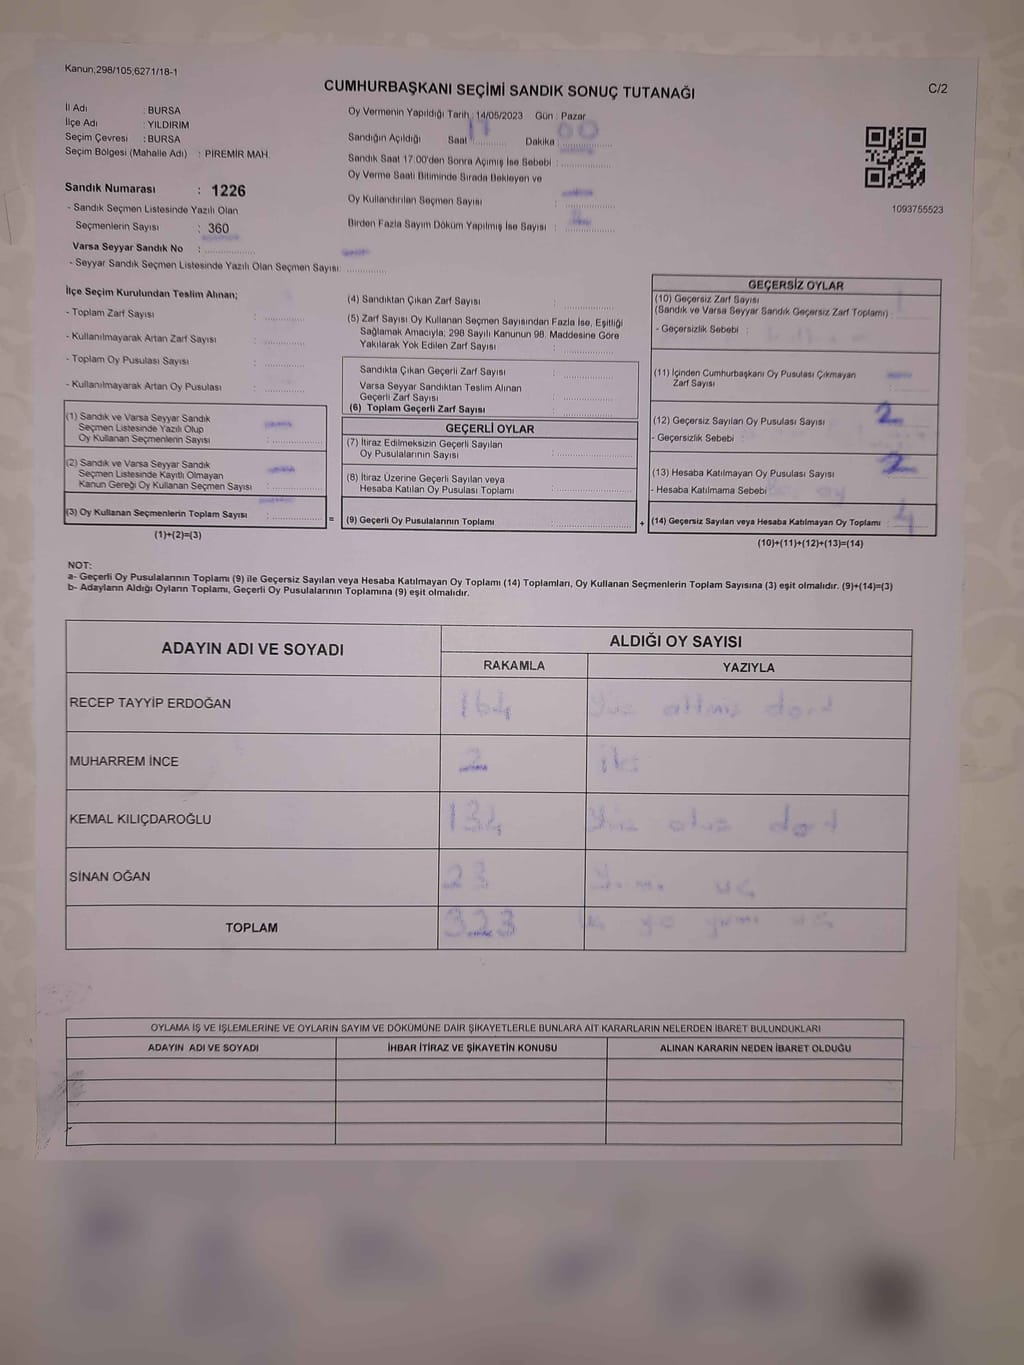 Kanun;298/105;6271/18-1
CUMHURBAŞKANI SEÇİMİ SANDIK SONUÇ TUTANAĞI
C/2
İl Adı : BURSA
İlçe Adı : YILDIRIM
Seçim Çevresi : BURSA
Seçim Bölgesi (Mahalle Adı) : PİREMİR MAH.
Oy Vermenin Yapıldığı Tarih : 14/05/2023 Gün : Pazar
Sandığın Açıldığı Saat : 17 Dakika : 00
Sandık Saat 17:00'den Sonra Açımış İse Sebebi :
Oy Verme Saati Bitiminde Sırada Bekleyen ve
Oy Kullandırılan Seçmen Sayısı :
Birden Fazla Sayım Döküm Yapılmış İse Sayısı :
1093755523
Sandık Numarası : 1226
- Sandık Seçmen Listesinde Yazılı Olan
Seçmenlerin Sayısı : 360
Varsa Seyyar Sandık No :
- Seyyar Sandık Seçmen Listesinde Yazılı Olan Seçmen Sayısı:
İlçe Seçim Kurulundan Teslim Alınan;
- Toplam Zarf Sayısı :
- Kullanılmayarak Artan Zarf Sayısı :
- Toplam Oy Pusulası Sayısı :
- Kullanılmayarak Artan Oy Pusulası :
(1) Sandık ve Varsa Seyyar Sandık
Seçmen Listesinde Yazılı Olup
Oy Kullanan Seçmenlerin Sayısı :
(2) Sandık ve Varsa Seyyar Sandık
Seçmen Listesinde Kayıtlı Olmayan
Kanun Gereği Oy Kullanan Seçmen Sayısı :
(3) Oy Kullanan Seçmenlerin Toplam Sayısı :
(1)+(2)=(3)
(4) Sandıktan Çıkan Zarf Sayısı :
(5) Zarf Sayısı Oy Kullanan Seçmen Sayısından Fazla İse, Eşitliği
Sağlamak Amacıyla; 298 Sayılı Kanunun 98. Maddesine Göre
Yakılarak Yok Edilen Zarf Sayısı :
Sandıkta Çıkan Geçerli Zarf Sayısı :
Varsa Seyyar Sandıktan Teslim Alınan
Geçerli Zarf Sayısı :
(6) Toplam Geçerli Zarf Sayısı :
GEÇERLİ OYLAR
(7) İtiraz Edilmeksizin Geçerli Sayılan
Oy Pusulalarının Sayısı :
(8) İtiraz Üzerine Geçerli Sayılan veya
Hesaba Katılan Oy Pusulası Toplamı :
= (9) Geçerli Oy Pusulalarının Toplamı :
GEÇERSİZ OYLAR
(10) Geçersiz Zarf Sayısı
(Sandık ve Varsa Seyyar Sandık Geçersiz Zarf Toplamı) :
- Geçersizlik Sebebi :
(11) İçinden Cumhurbaşkanı Oy Pusulası Çıkmayan
Zarf Sayısı :
(12) Geçersiz Sayılan Oy Pusulası Sayısı : 2
- Geçersizlik Sebebi :
(13) Hesaba Katılmayan Oy Pusulası Sayısı : 2
- Hesaba Katılmama Sebebi
+ (14) Geçersiz Sayılan veya Hesaba Katılmayan Oy Toplamı : 4
(10)+(11)+(12)+(13)=(14)
NOT:
a- Geçerli Oy Pusulalarının Toplamı (9) ile Geçersiz Sayılan veya Hesaba Katılmayan Oy Toplamı (14) Toplamları, Oy Kullanan Seçmenlerin Toplam Sayısına (3) eşit olmalıdır. (9)+(14)=(3)
b- Adayların Aldığı Oyların Toplamı, Geçerli Oy Pusulalarının Toplamına (9) eşit olmalıdır.
ADAYIN ADI VE SOYADI ALDIĞI OY SAYISI
RAKAMLA YAZIYLA
RECEP TAYYİP ERDOĞAN 164 Yüz altmış dört
MUHARREM İNCE 2 iki
KEMAL KILIÇDAROĞLU 134 Yüz otuz dört
SİNAN OĞAN 23
TOPLAM 323
OYLAMA İŞ VE İŞLEMLERİNE VE OYLARIN SAYIM VE DÖKÜMÜNE DAİR ŞİKAYETLERLE BUNLARA AİT KARARLARIN NELERDEN İBARET BULUNDUKLARI
ADAYIN ADI VE SOYADI İHBAR İTİRAZ VE ŞİKAYETİN KONUSU ALINAN KARARIN NEDEN İBARET OLDUĞU